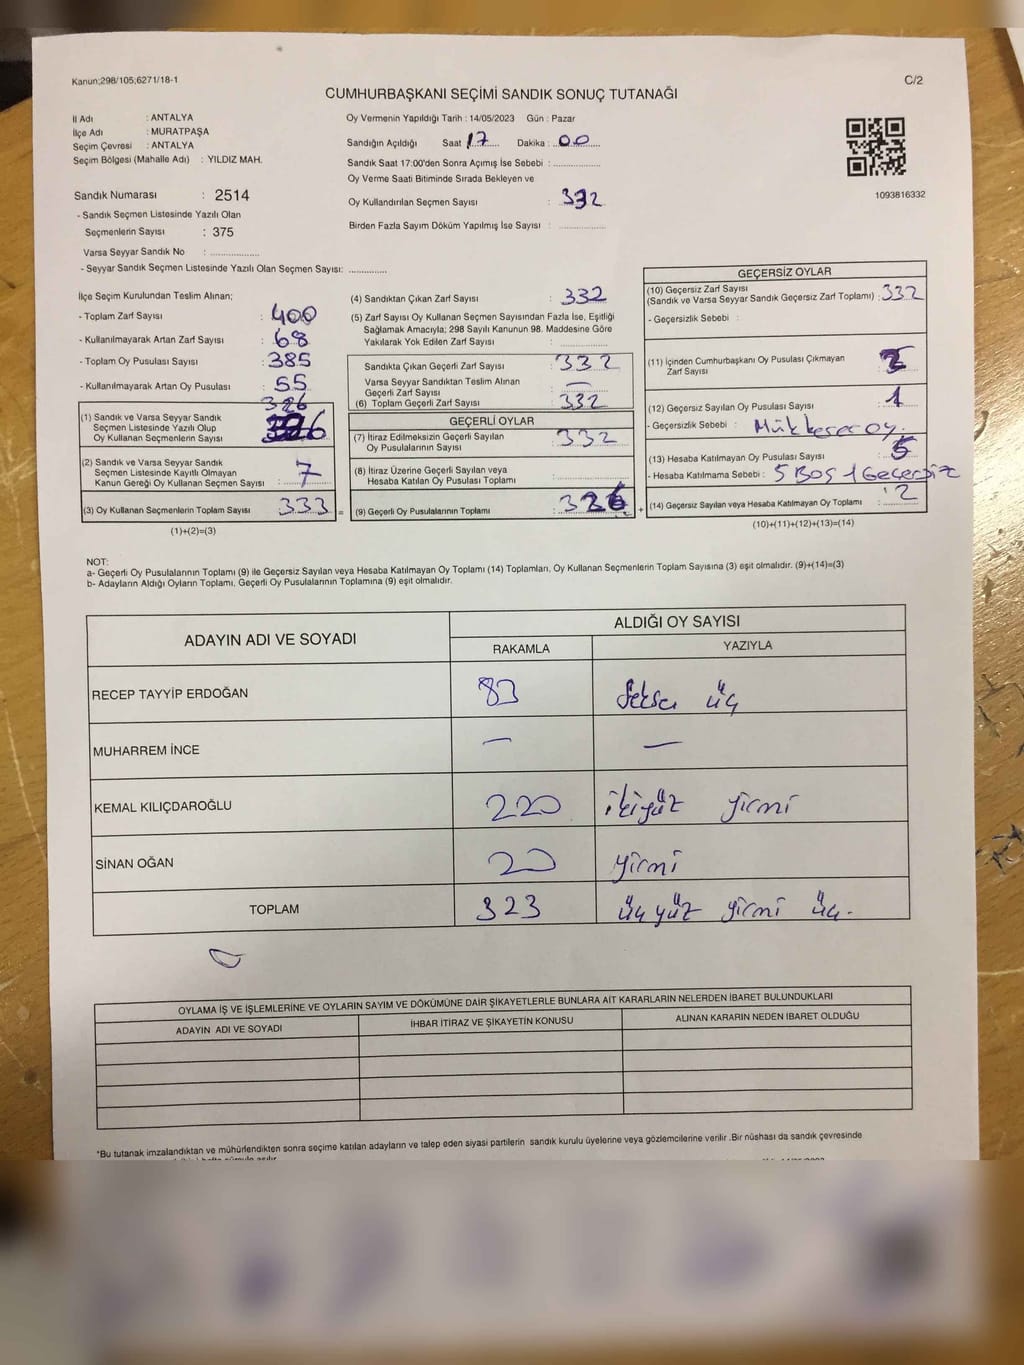 Kanun;298/105;6271/18-1
C/2
CUMHURBAŞKANI SEÇİMİ SANDIK SONUÇ TUTANAĞI
İl Adı : ANTALYA
İlçe Adı : MURATPAŞA
Seçim Çevresi : ANTALYA
Seçim Bölgesi (Mahalle Adı) : YILDIZ MAH.
Sandık Numarası : 2514
- Sandık Seçmen Listesinde Yazılı Olan
Seçmenlerin Sayısı : 375
Varsa Seyyar Sandık No : ..............
- Seyyar Sandık Seçmen Listesinde Yazılı Olan Seçmen Sayısı: ..............
Oy Vermenin Yapıldığı Tarih : 14/05/2023 Gün : Pazar
Sandığın Açıldığı Saat 17 Dakika : 00
Sandık Saat 17:00'den Sonra Açımış İse Sebebi : ..............
Oy Verme Saati Bitiminde Sırada Bekleyen ve
Oy Kullandırılan Seçmen Sayısı : 332
Birden Fazla Sayım Döküm Yapılmış İse Sayısı : ..............
1093816332
İlçe Seçim Kurulundan Teslim Alınan;
- Toplam Zarf Sayısı : 400
- Kullanılmayarak Artan Zarf Sayısı : 68
- Toplam Oy Pusulası Sayısı : 385
- Kullanılmayarak Artan Oy Pusulası : 55
326
(1) Sandık ve Varsa Seyyar Sandık
Seçmen Listesinde Yazılı Olup
Oy Kullanan Seçmenlerin Sayısı
(2) Sandık ve Varsa Seyyar Sandık
Seçmen Listesinde Kayıtlı Olmayan
Kanun Gereği Oy Kullanan Seçmen Sayısı : 7
(3) Oy Kullanan Seçmenlerin Toplam Sayısı : 333 =
(1)+(2)=(3)
(4) Sandıktan Çıkan Zarf Sayısı : 332
(5) Zarf Sayısı Oy Kullanan Seçmen Sayısından Fazla İse, Eşitliği
Sağlamak Amacıyla; 298 Sayılı Kanunun 98. Maddesine Göre
Yakılarak Yok Edilen Zarf Sayısı : ..............
Sandıkta Çıkan Geçerli Zarf Sayısı : 332
Varsa Seyyar Sandıktan Teslim Alınan
Geçerli Zarf Sayısı : —
(6) Toplam Geçerli Zarf Sayısı : 332
GEÇERLİ OYLAR
(7) İtiraz Edilmeksizin Geçerli Sayılan
Oy Pusulalarının Sayısı : 332
(8) İtiraz Üzerine Geçerli Sayılan veya
Hesaba Katılan Oy Pusulası Toplamı : ..............
(9) Geçerli Oy Pusulalarının Toplamı : 326 +
GEÇERSİZ OYLAR
(10) Geçersiz Zarf Sayısı
(Sandık ve Varsa Seyyar Sandık Geçersiz Zarf Toplamı) : 332
- Geçersizlik Sebebi :
(11) İçinden Cumhurbaşkanı Oy Pusulası Çıkmayan
Zarf Sayısı :
(12) Geçersiz Sayılan Oy Pusulası Sayısı : 1
- Geçersizlik Sebebi : Mükkerer oy.
(13) Hesaba Katılmayan Oy Pusulası Sayısı : 5
- Hesaba Katılmama Sebebi : 5 Boş 1 Geçersiz
(14) Geçersiz Sayılan veya Hesaba Katılmayan Oy Toplamı : 2
(10)+(11)+(12)+(13)=(14)
NOT:
a- Geçerli Oy Pusulalarının Toplamı (9) ile Geçersiz Sayılan veya Hesaba Katılmayan Oy Toplamı (14) Toplamları, Oy Kullanan Seçmenlerin Toplam Sayısına (3) eşit olmalıdır. (9)+(14)=(3)
b- Adayların Aldığı Oyların Toplamı, Geçerli Oy Pusulalarının Toplamına (9) eşit olmalıdır.
ADAYIN ADI VE SOYADI
ALDIĞI OY SAYISI
RAKAMLA YAZIYLA
RECEP TAYYİP ERDOĞAN 83 Seksen üç
MUHARREM İNCE — —
KEMAL KILIÇDAROĞLU 220 ikiyüz yirmi
SİNAN OĞAN 20 yirmi
TOPLAM 323 üçyüz yirmi üç.
OYLAMA İŞ VE İŞLEMLERİNE VE OYLARIN SAYIM VE DÖKÜMÜNE DAİR ŞİKAYETLERLE BUNLARA AİT KARARLARIN NELERDEN İBARET BULUNDUKLARI
ADAYIN ADI VE SOYADI İHBAR İTİRAZ VE ŞİKAYETİN KONUSU ALINAN KARARIN NEDEN İBARET OLDUĞU
*Bu tutanak imzalandıktan ve mühürlendikten sonra seçime katılan adayların ve talep eden siyasi partilerin sandık kurulu üyelerine veya gözlemcilerine verilir .Bir nüshası da sandık çevresinde